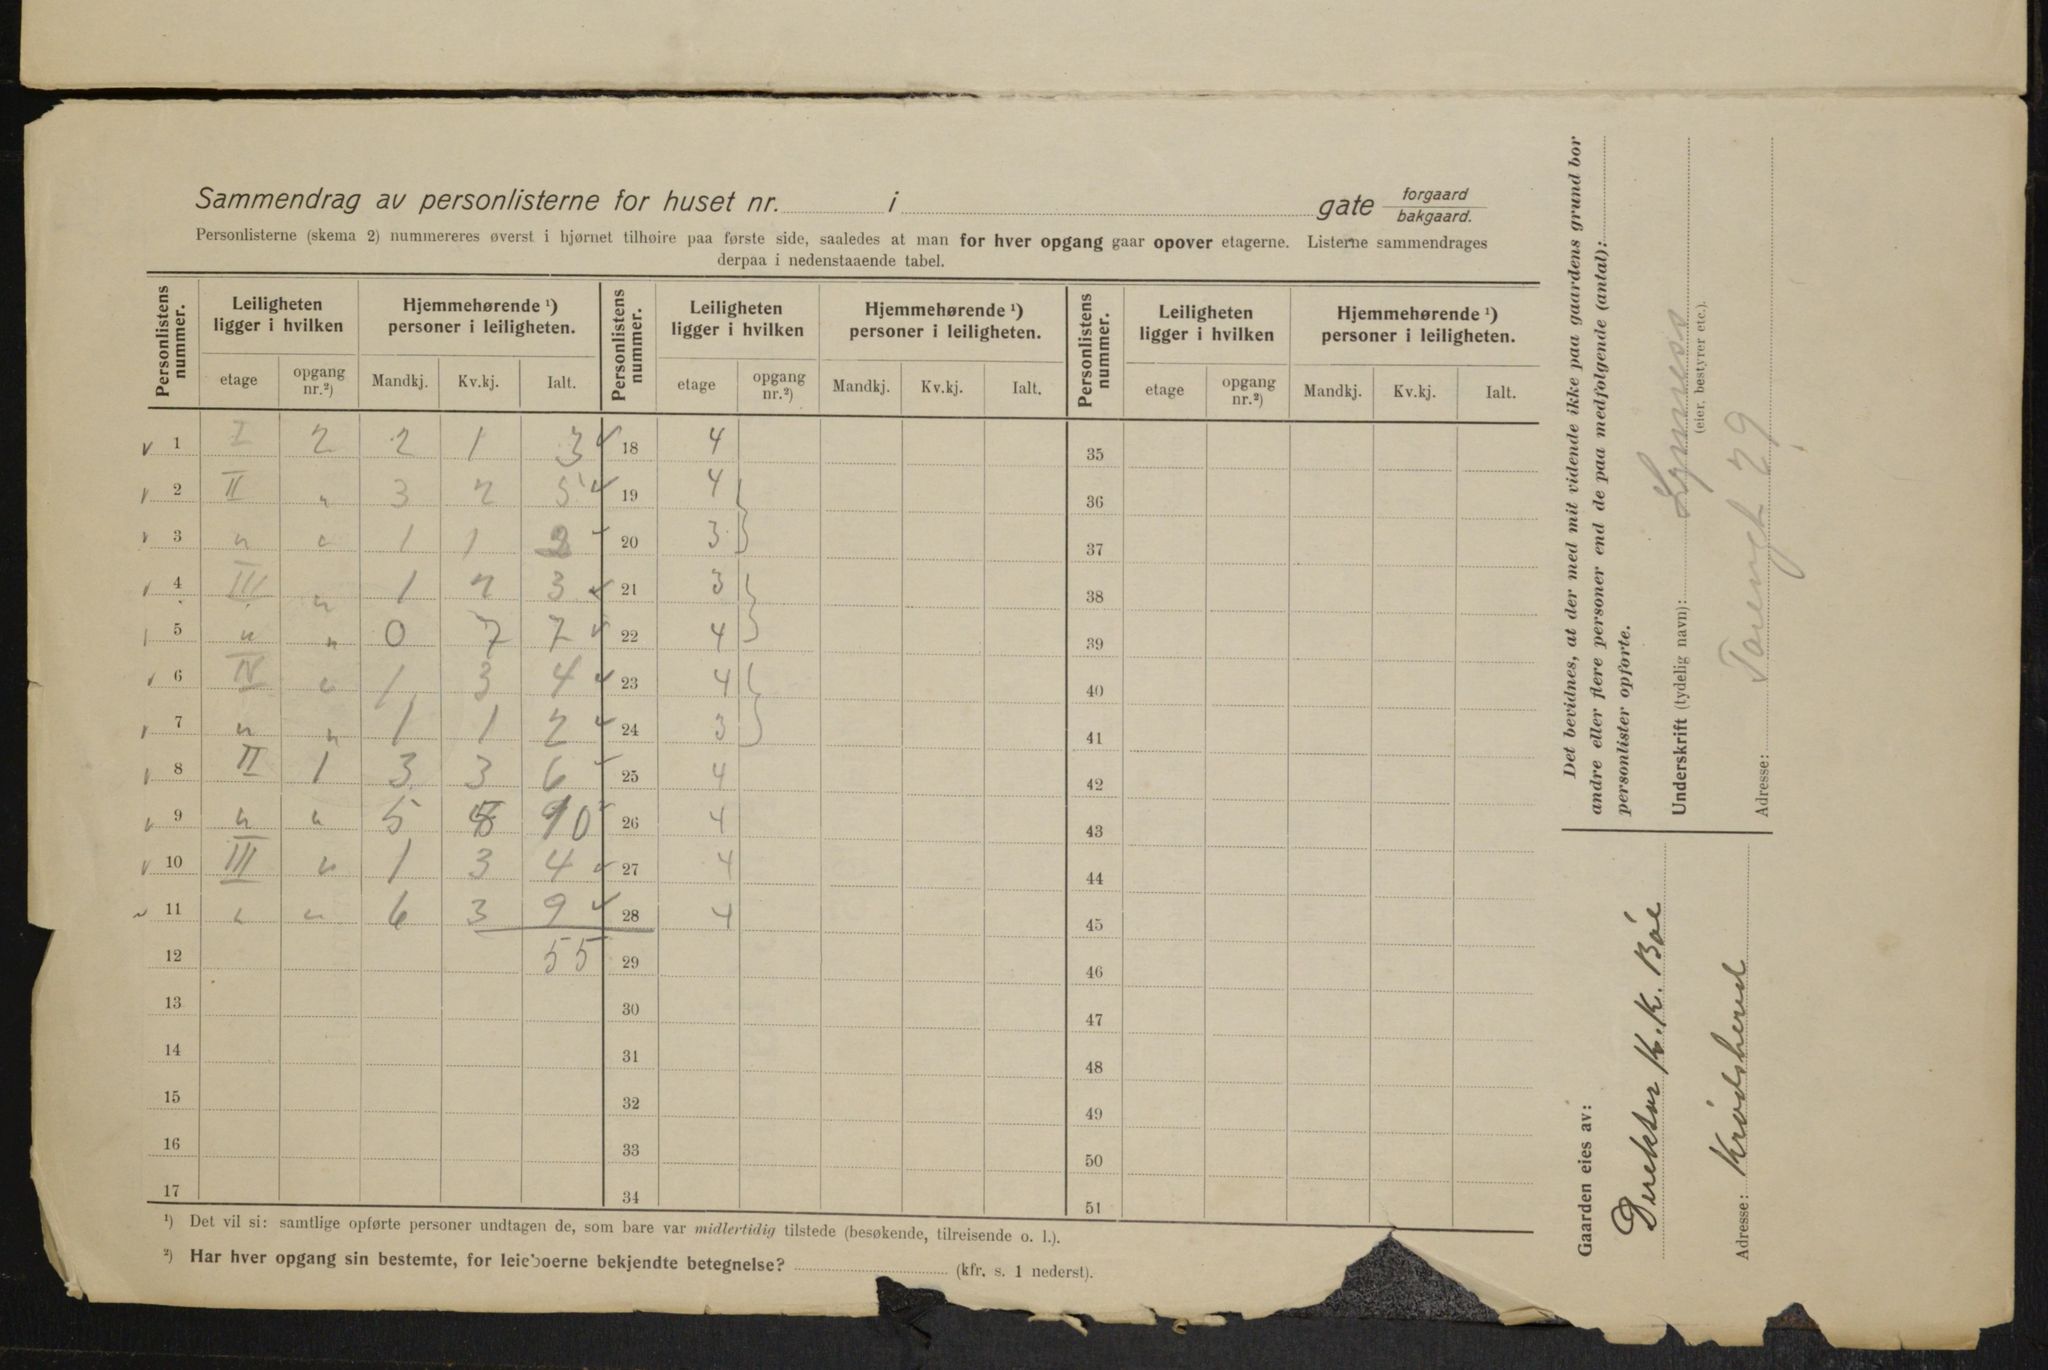 Sammendrag av personlisterne for huset nr. i gate forgaard bakgaard.
Personlisterne (skema 2) nummereres øverst i hjørnet tilhøire paa første side, saaledes at man for hver opgang gaar opover etagerne. Listerne sammendrages
derpaa i nedenstaaende tabel.
Personlistens nummer. Leiligheten ligger i hvilken Hjemmehørende ¹) personer i leiligheten. Personlistens nummer. Leiligheten ligger i hvilken Hjemmehørende ¹) personer i leiligheten. Personlistens nummer. Leiligheten ligger i hvilken Hjemmehørende ¹) personer i leiligheten.
etage opgang nr.²) Mandkj. Kv.kj. Ialt. etage opgang nr.²) Mandkj. Kv.kj. Ialt. etage opgang nr.²) Mandkj. Kv.kj. Ialt.
1 I 2 2 1 3 18 4 35
2 II " 3 2 5 19 4 36
3 " " 1 1 2 20 3 37
4 III " 1 2 3 21 3 38
5 " " 0 7 7 22 4 39
6 IV " 1 3 4 23 4 40
7 " " 1 1 2 24 3 41
8 II 1 3 3 6 25 4 42
9 " " 5 5 10 26 4 43
10 III " 1 3 4 27 4 44
11 " " 6 3 9 28 4 45
12 55 29 46
13 30 47
14 31 48
15 32 49
16 33 50
17 34 51
¹) Det vil si: samtlige opførte personer undtagen de, som bare var midlertidig tilstede (besøkende, tilreisende o. l.).
²) Har hver opgang sin bestemte, for leieboerne bekjendte betegnelse? (kfr. s. 1 nederst).
Det bevidnes, at der med mit vidende ikke paa gaardens grund bor
andre eller flere personer end de paa medfølgende (antal):
personlister opførte.
Underskrift (tydelig navn):
(eier, bestyrer etc.).
Adresse: 29
Gaarden eies av:
Direktør K. K. Bóe
Adresse: Krødsherred